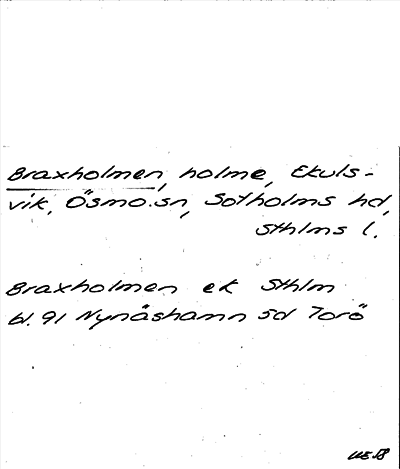 Braxholmen, holme, Ekuls-
vik, Ösmo sn, Sotholms hd,
Sthlms l.
Braxholmen ek Sthlm
bl. 91 Nynäshamn sd Torö